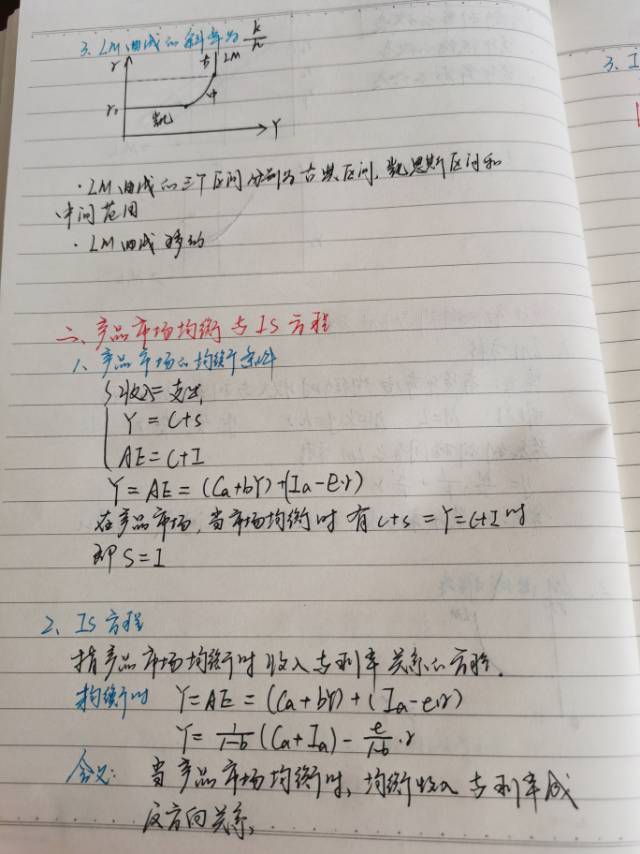 3. LM曲线的斜率为k/h
r
古
LM
中
r₀
凯
Y
·LM曲线的三个区间分别为古典区间,凯恩斯区间和
中间范围
·LM曲线移动
二、产品市场均衡与IS方程
1、产品市场的均衡条件
收入=支出
Y=C+S
AE=C+I
Y=AE=(Ca+bY)+(Ia-e·r)
在产品市场,当市场均衡时有C+S=Y=C+I时
即S=I
2、IS方程
指产品市场均衡时收入与利率关系的方程.
均衡时 Y=AE=(Ca+bY)+(Ia-e·r)
Y=1/1-b(Ca+Ia)-e/1-b·r
含义:当产品市场均衡时,均衡收入与利率成
反方向关系.
3. I